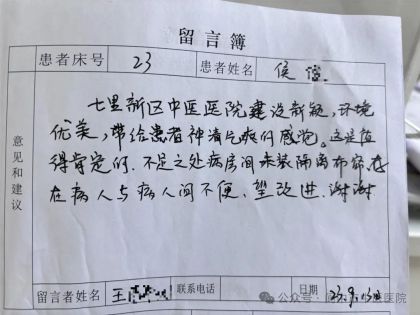 留言簿
患者床号 23 患者姓名 侯
意见和建议
七里新区中医医院建设新颖,环境
优美,带给患者神清气爽的感觉。这是值
得肯定的.不足之处病房间未装隔离布帘,存
在病人与病人间不便.望改进.谢谢
留言者姓名 王 联系电话 日期 23.9.13
公众号 中医医院